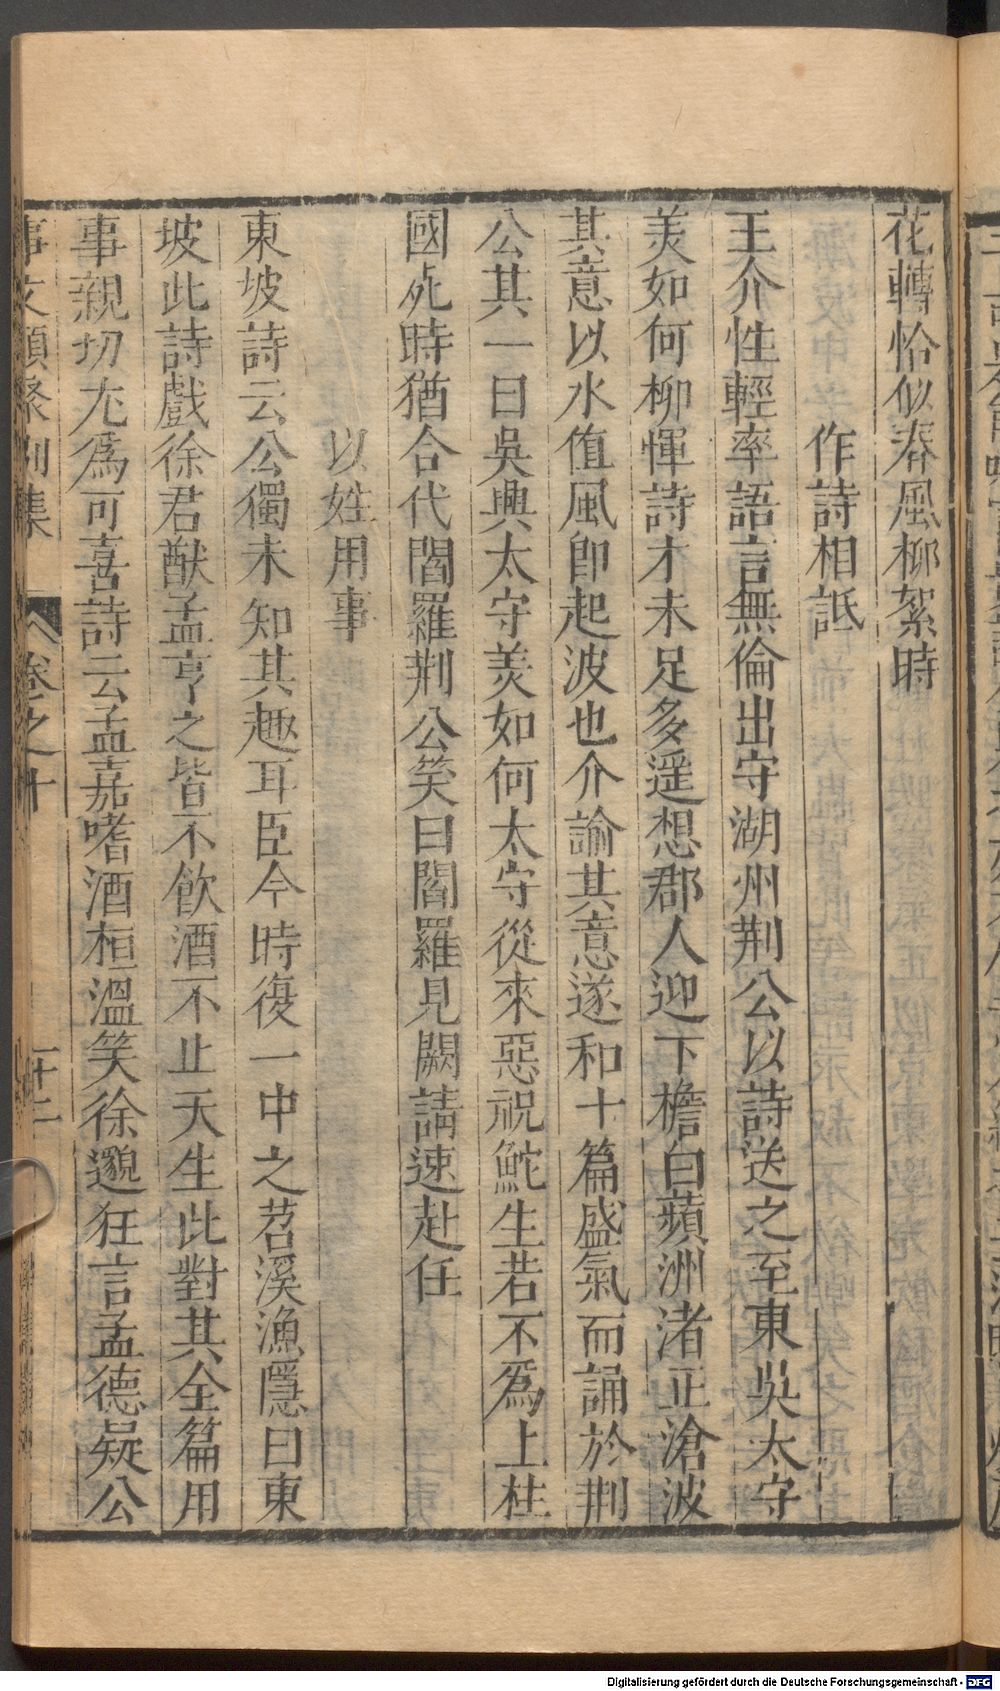 花轉恰似春風柳絮時
作詩相詆
王介性輕率語言無倫出守湖州荆公以詩送之至東吳太守
羙如何柳惲詩才未足多遥想郡人迎下檐白蘋洲渚正滄波
其意以水值風卽起波也介諭其意遂和十篇盛氣而誦於荆
公其一曰吳興太守羙如何太守從來惡祝鮀生若不爲上柱
國死時猶合代閻羅荆公笑曰閻羅見闕請速赴任
以姓用事
東坡詩云公獨未知其趣耳臣今時復一中之苕溪漁隱曰東
坡此詩戲徐君猷孟亨之皆不飲酒不止天生此對其全篇用
事親切尤爲可喜詩云孟嘉嗜酒桓溫笑徐邈狂言孟德疑公
事文類聚別集
卷之十
十二
Digitalisierung gefördert durch die Deutsche Forschungsgemeinschaft - DFG